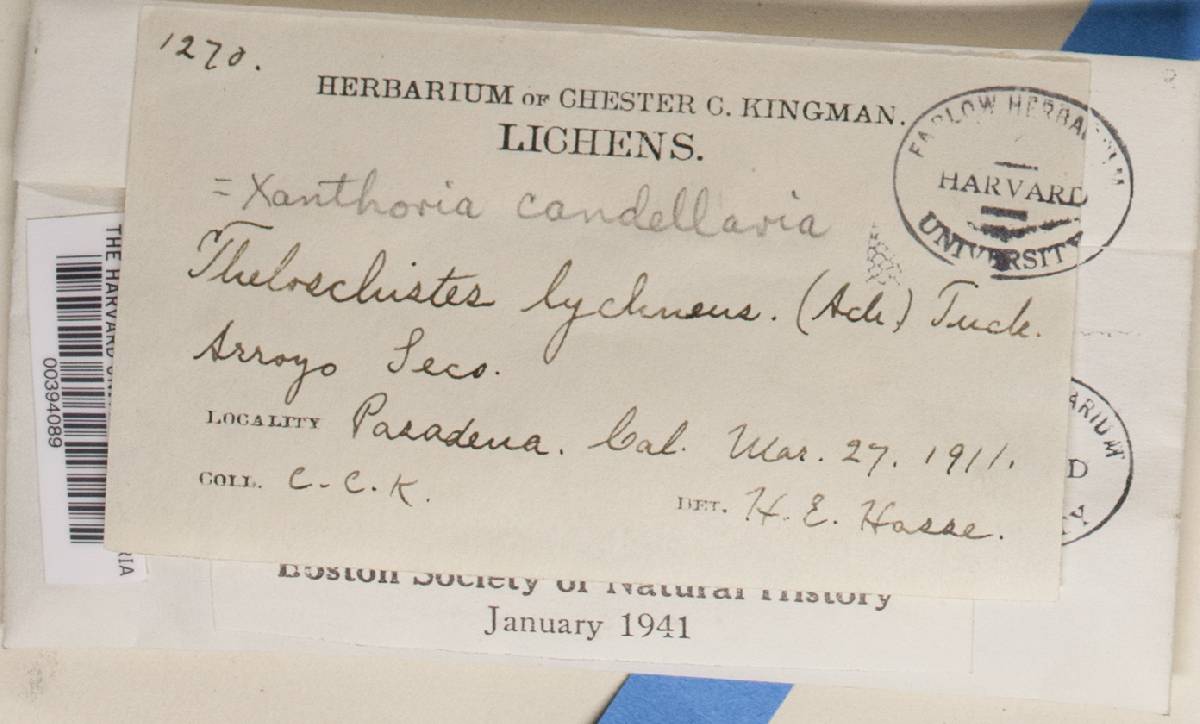 1270.
HERBARIUM OF CHESTER C. KINGMAN.
LICHENS.
= Xanthoria candellaria
Theloschistes lychneus. (Ach) Tuck.
Arroyo Seco.
LOCALITY Pasadena. Cal. Mar. 27. 1911.
COLL. C-C.K.
DET. H. E. Hasse.
FARLOW HERBARIUM
HARVARD
UNIVERSITY
THE HARVARD
00394089
Boston Society of Natural History
January 1941
ARIUM
D